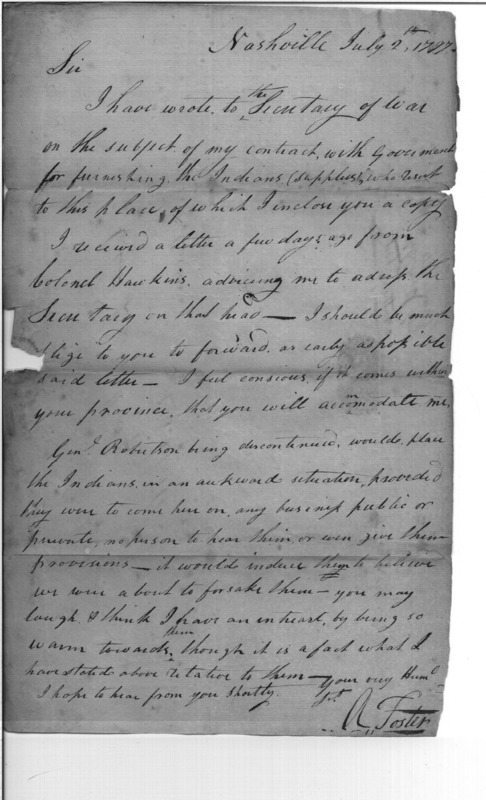 Nashville July 2th. 1797.
Sir
I have wrote to the Secretary of War
on the subject of my contract, with Goverment
for furnishing the Indians, (supplies), who resort
to this place, of which I inclose you a copy
I receivd a letter a few days, ago from
Colonel Hawkins, adviceing me to adress the
Secretary on that head — I should be much
oblige to you to forward, as early as possible
said letter — I feel consious, if it comes within
your province, that you will accommodate me,
Genl. Robertson being discontinued, would, place
the Indians, in an aukward situation, provided
they were to come here on, any business public or
private, no person to hear them, or even give them
provisions — it would induce them to believe
we were about to forsake them — you may
laugh, & think I have an intrest, by being so
warm towards them, though it is a fact what I
have stated above relative to them — your very Humb
I hope to hear from you shortly. St.
A Foster